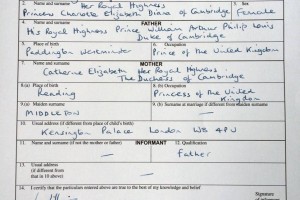 2. Name and surname Her Royal Highness 3. Sex
Princess Charlotte Elizabeth Diana of Cambridge Female
FATHER
4. Name and surname
His Royal Highness Prince William Arthur Philip Louis
Duke of Cambridge
5. Place of birth 6. Occupation
Paddington Westminster Prince of the United Kingdom
MOTHER
7. Name and surname
Catherine Elizabeth Her Royal Highness
The Duchess of Cambridge
8.(a) Place of birth 8.(b) Occupation
Reading Princess of the United
Kingdom
9.(a) Maiden surname 9.(b) Surname at marriage if different from maiden surname
MIDDLETON —
10. Usual address (if different from place of child's birth)
Kensington Palace London W8 4PU
INFORMANT
11. Name and surname (if not the mother or father) 12. Qualification
— Father
13. Usual address
(if different from that
in 10 above) —
14. I certify that the particulars entered above are true to the best of my knowledge and belief
Signature